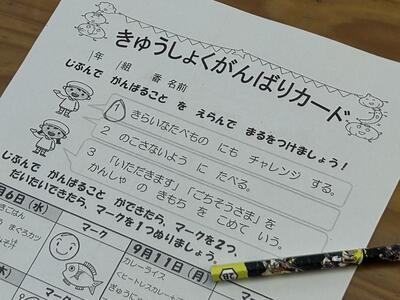 きゅうしょくがんばりカード
年 組 番 名前
じぶんで がんばること を えらんで まるをつけましょう!
きらいなたべもの にも チャレンジ する。
2 のこさないよう に たべる。
3 「いただきます」「ごちそうさま」を
かんしゃ の きもち を こめて いう。
じぶんで がんばること ができたら、マークを2つ、
だいたいできたら、マークを1つぬりましょう。
月6日(水)
マーク
9月11日(月)
カレーライス